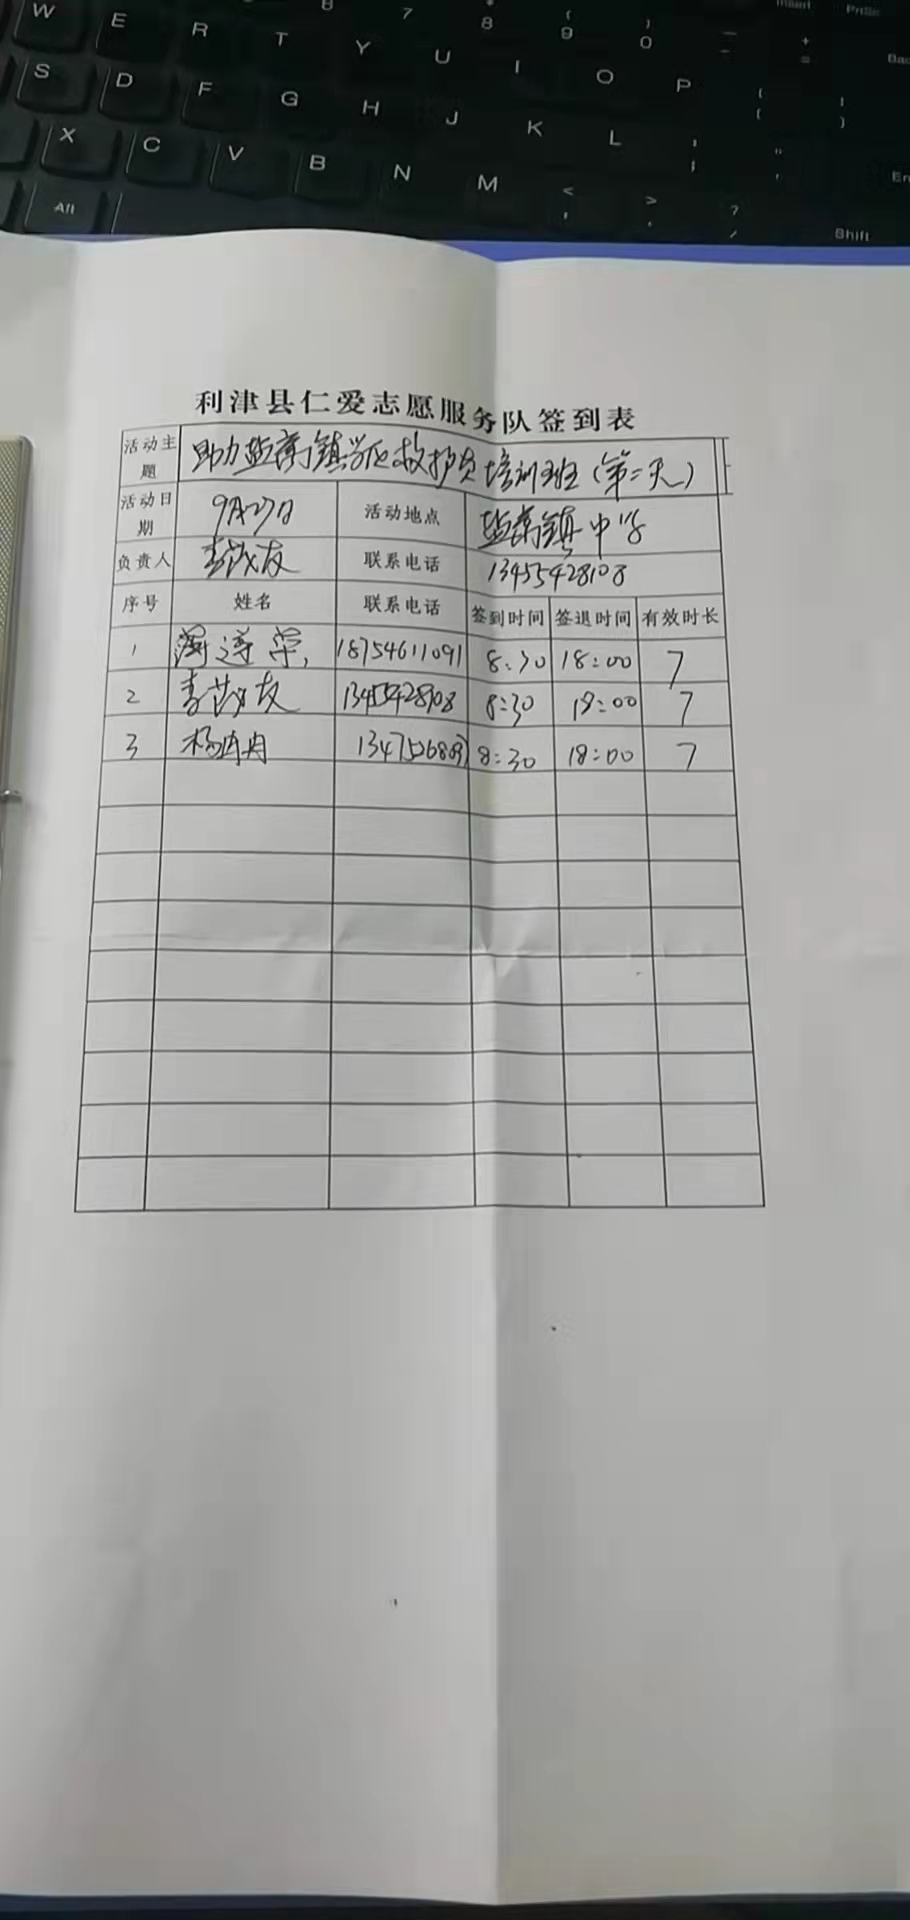 W E R T Y U I O P
S D F G H J K L
X C V B N M
Alt Shift
利津县仁爱志愿服务队签到表
活动主题 助力盐窝镇 救护员培训班(第二天)
活动日期 9月27日 活动地点 盐窝镇中学
负责人 李茂友 联系电话 13455428108
序号 姓名 联系电话 签到时间 签退时间 有效时长
1 18754611091 8:30 18:00 7
2 李茂友 13455428108 8:30 18:00 7
3 8:30 18:00 7